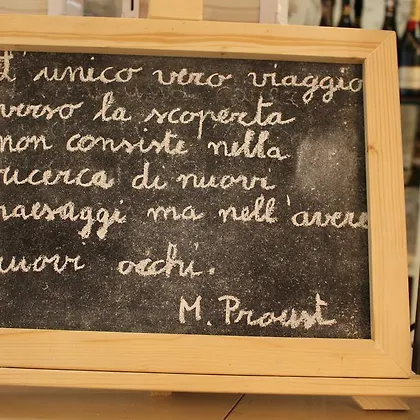 L'unico vero viaggio
verso la scoperta
non consiste nella
ricerca di nuovi
paesaggi ma nell'avere
nuovi occhi.
M. Proust